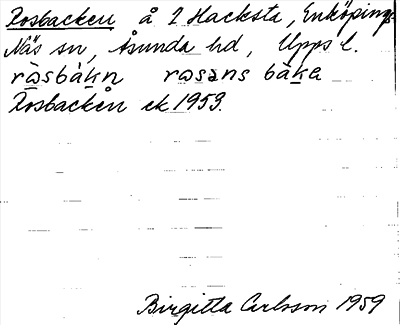 Rosbacken å 2 Hacksta, Enköpings-
Näs sn, Åsunda hd, Upps l.
ròsbàkn rosəns bàka
Rosbacken ek 1953.
Birgitta Carlsson 1959